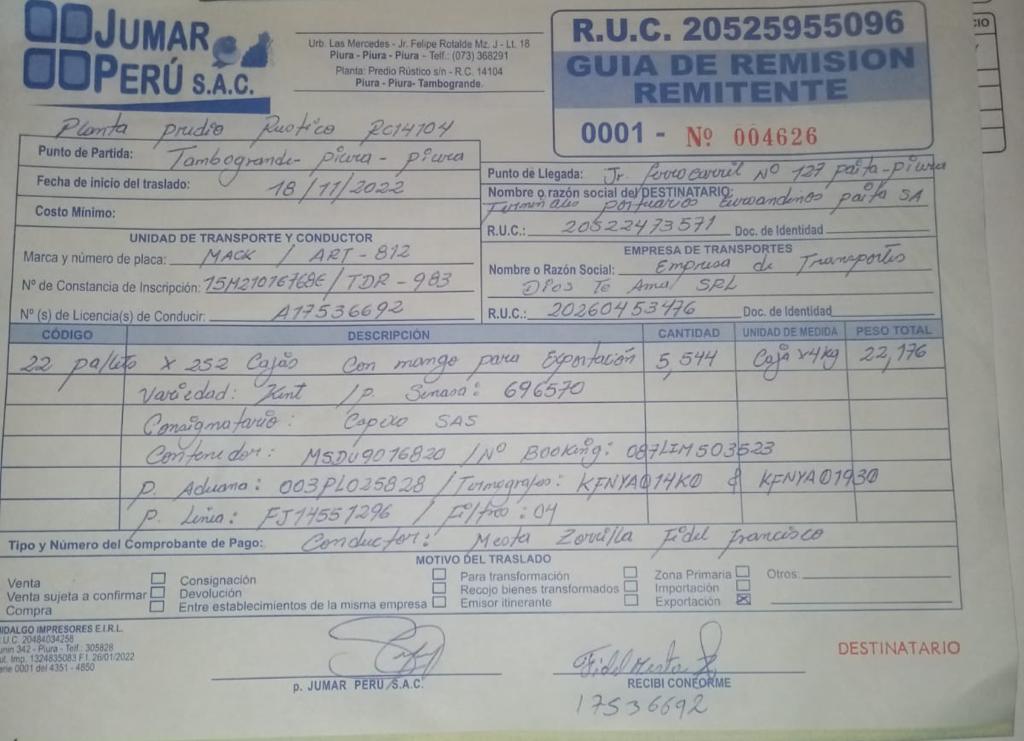 JUMAR
PERÚ S.A.C.
Urb. Las Mercedes - Jr. Felipe Rotalde Mz. J - Lt. 18
Piura - Piura - Piura - Telf.: (073) 368291
Planta: Predio Rústico s/n - R.C. 14104
Piura - Piura- Tambogrande.
R.U.C. 20525955096
GUIA DE REMISION
REMITENTE
0001 - Nº 004626
Planta predio Rustico RC14104
Punto de Partida: Tambogrande - piura - piura
Fecha de inicio del traslado: 18/11/2022
Costo Mínimo:
Punto de Llegada: Jr. ferrocarril Nº 127 paita-piura
Nombre o razón social del DESTINATARIO:
Terminales portuarios Euroandinos paita SA
R.U.C.: 20522473571 Doc. de Identidad
UNIDAD DE TRANSPORTE Y CONDUCTOR
Marca y número de placa: MACK / ART-812
Nº de Constancia de Inscripción: 15M21016768E / TDR-983
Nº (s) de Licencia(s) de Conducir: A17536692
EMPRESA DE TRANSPORTES
Nombre o Razón Social: Empresa de Transportes
Dios Te Ama SRL
R.U.C.: 20260453476 Doc. de Identidad
CÓDIGO DESCRIPCIÓN CANTIDAD UNIDAD DE MEDIDA PESO TOTAL
22 pallets x 252 Cajas Con mango para Exportación 5,544 Caja x4kg 22,176
Variedad: Kent /P. Senasa: 696570
Consignatario: Capexo SAS
Contenedor: MSDU9016820 /Nº Booking: 087LIM503523
P. Aduana: 003PL025828 /Termografos: KFNYA014K0 & KFNYA01930
P. Linea: FJ14551296 / Filtros: 04
Tipo y Número del Comprobante de Pago: Conductor: Mesta Zorrilla Fidel Francisco
MOTIVO DEL TRASLADO
Venta
Venta sujeta a confirmar
Compra
Consignación
Devolución
Entre establecimientos de la misma empresa
Para transformación
Recojo bienes transformados
Emisor itinerante
Zona Primaria
Importación
Exportación X
Otros:
HIDALGO IMPRESORES E.I.R.L.
R.U.C. 20484034258
Junin 342 - Piura - Telf.: 305828
Aut. Imp. 1324835083 F.I. 26/01/2022
Serie 0001 del 4351 - 4850
p. JUMAR PERU S.A.C.
Fidel Mesta
RECIBI CONFORME
17536692
DESTINATARIO